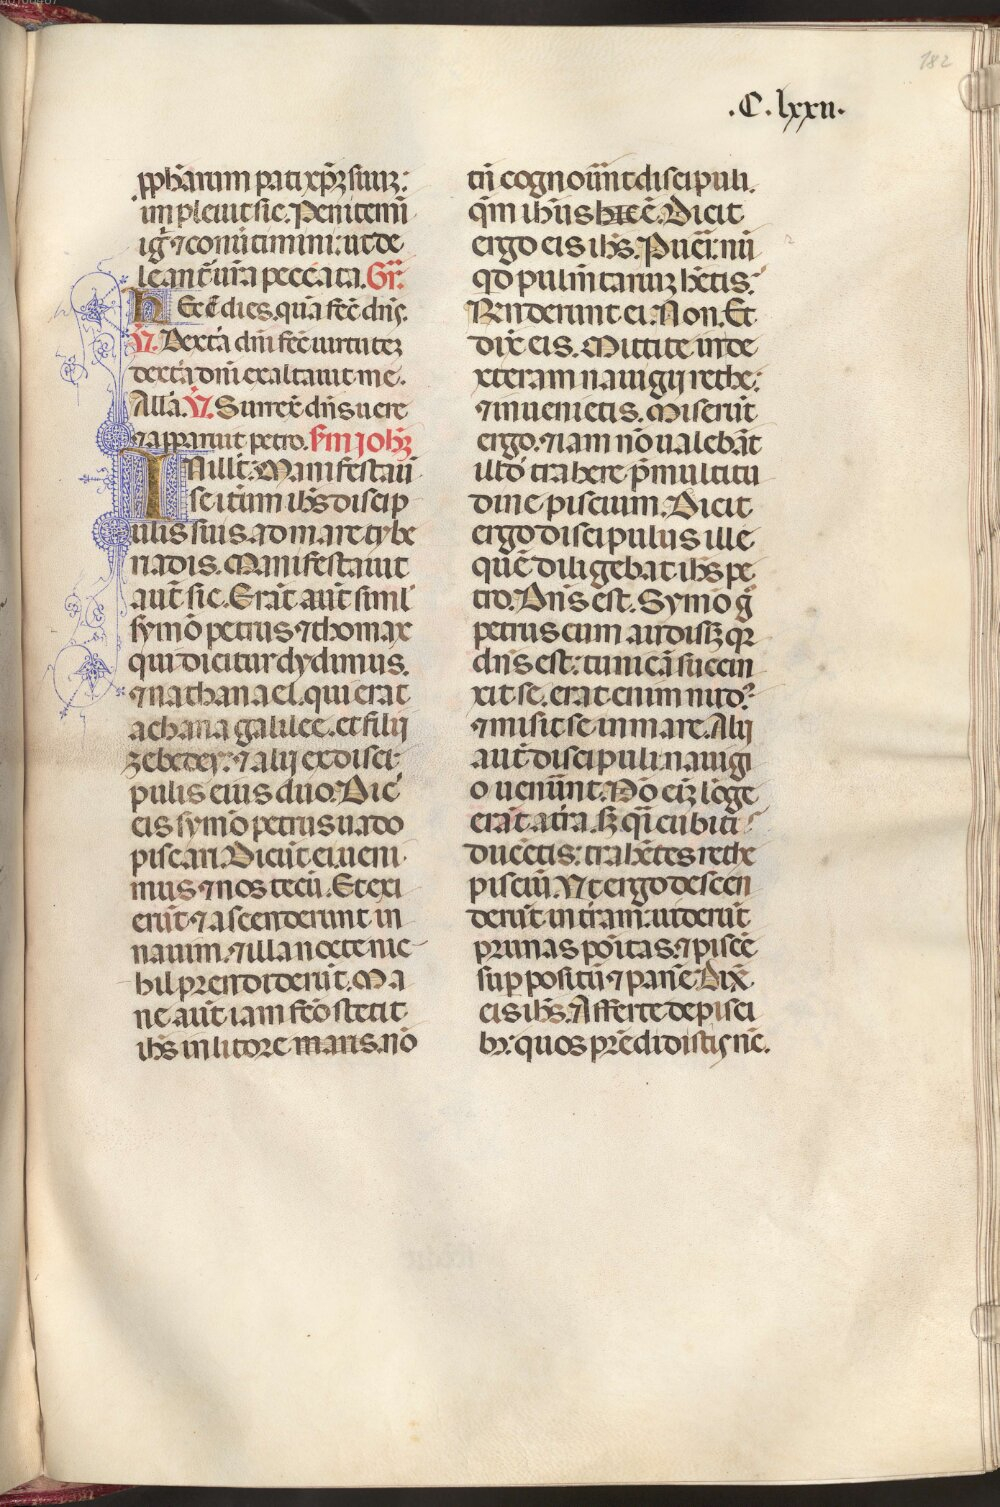 182
.C.lxxii.
pphãrum pati xp̃ꝫ suuꝫ:
impleuit sic. Penitemĩ
ig̃ ⁊ conũtimini: ut de
leant̃ ur̃a peccata. Gr̃.
Hec ẽ dies, quã fec̃ dñs.
V̄. Dexta dñi fec̃ uirtuteꝫ
dext̃a dñi exaltauit me.
Alla᷑. V̄. Surrex̃ dñs uere
⁊ apparuit petro. sm̃ johꝫ
In illo t̃. Manifestaũ
se itũm ihs̃ discip
ulis suis. ad mare tybe
riadis. Manifestauit
aut̃ sic. Erãt aut̃ siml̃
symõ petrus ⁊ thomax
qui dicitur dydimus.
⁊ nathanael. qui erat
achana galilee. et filij
zebedey: ⁊ alij ex disci
pulis eius duo. Dic̃
eis symõ petrus uado
piscari. Dicũt ei. ueni
mus ⁊ nos tecũ. Et exi
erũt ⁊ ascenderunt in
nauim. ⁊ illa nocte nic
hil prendiderũt. Ma
ne aũt iam fc̃o stetit
ihs̃ in litore maris. nõ
tñ cognoũũnt discipuli.
qm̃ ihũs hic ẽ. Dicit
ergo eis ihs̃. Pueri: nũ
qd pulm̃tariuꝫ hẽtis.
Rñderunt ei. Non. Et
dix̃ eis. Mittite in de
xteram nauigij rethe:
⁊ inuenietis. Miserũt
ergo. ⁊ iam nõ ualebãt
illd̃ trahere p̃ multitu
dine piscium. Dicit
ergo discipulus ille
quẽ diligebat ihs̃ pe
tro. Dñs est. Symõ g̃
petrus cum audisꝫ qꝛ
dñs est: tunicã succin
xit se. erat enim nudꝰ
⁊ misit se in mare. Alij
aut̃ discipuli nauigi
o uenũnt. Nõ eĩꝫ lõge
erãt a tr̃a. sꝫ qĩ cubiti
ducẽtis: trahẽtes rethe
pisciũ. Vt ergo descen
derũt in tr̃am: uiderũt
prunas põitas. ⁊ piscẽ
suppositũ ⁊ panẽ. Dix̃
eis ihs̃. Afferte de pisci
bꝫ: quos prẽdidistis nc̃.